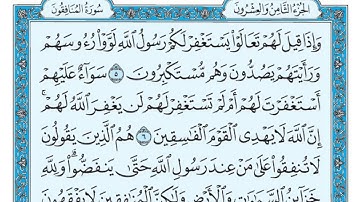 الجزء الثامن والعشرون
سورة المنافقون
وَإِذَا قِيلَ لَهُمْ تَعَالَوْا۟ يَسْتَغْفِرْ لَكُمْ رَسُولُ ٱللَّهِ لَوَّوْا۟ رُءُوسَهُمْ
وَرَأَيْتَهُمْ يَصُدُّونَ وَهُم مُّسْتَكْبِرُونَ ٥ سَوَآءٌ عَلَيْهِمْ
أَسْتَغْفَرْتَ لَهُمْ أَمْ لَمْ تَسْتَغْفِرْ لَهُمْ لَن يَغْفِرَ ٱللَّهُ لَهُمْ ۚ
إِنَّ ٱللَّهَ لَا يَهْدِى ٱلْقَوْمَ ٱلْفَٰسِقِينَ ٦ هُمُ ٱلَّذِينَ يَقُولُونَ
لَا تُنفِقُوا۟ عَلَىٰ مَنْ عِندَ رَسُولِ ٱللَّهِ حَتَّىٰ يَنفَضُّوا۟ ۗ وَلِلَّهِ
خَزَآئِنُ ٱلسَّمَٰوَٰتِ وَٱلْأَرْضِ وَلَٰكِنَّ ٱلْمُنَٰفِقِينَ لَا يَفْقَهُونَ